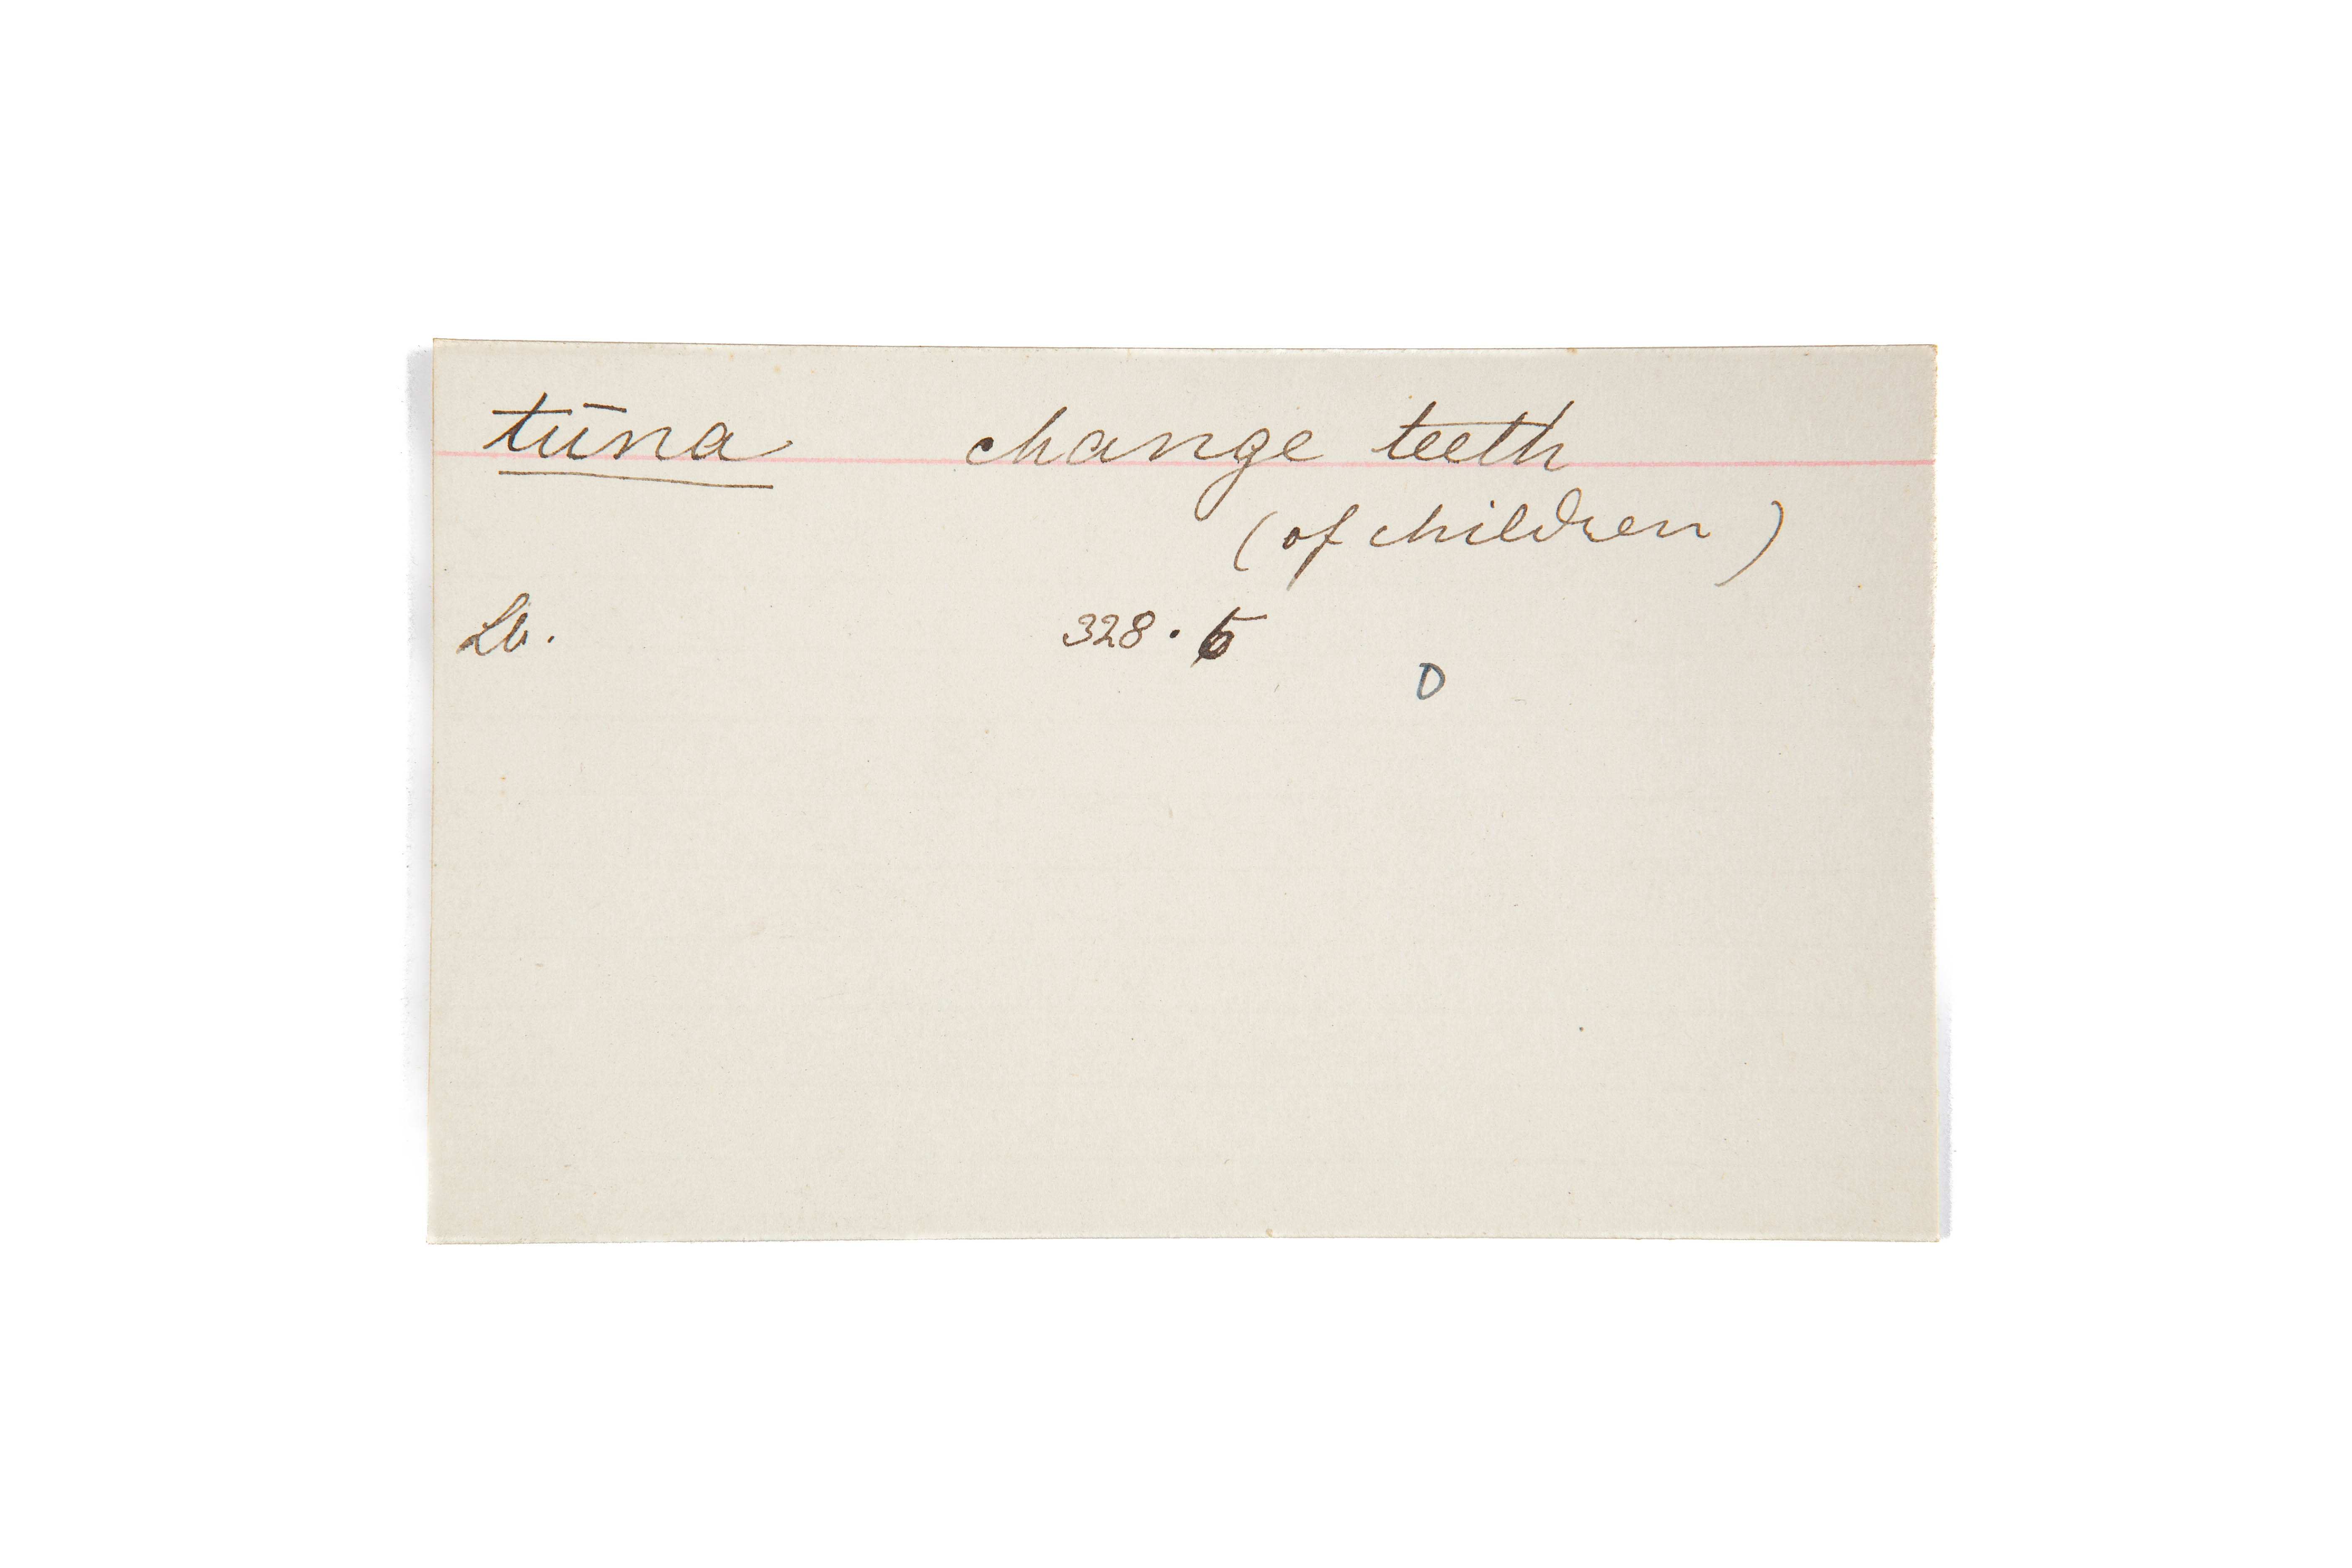 tūna change teeth
(of children)
Lb. 328.
D